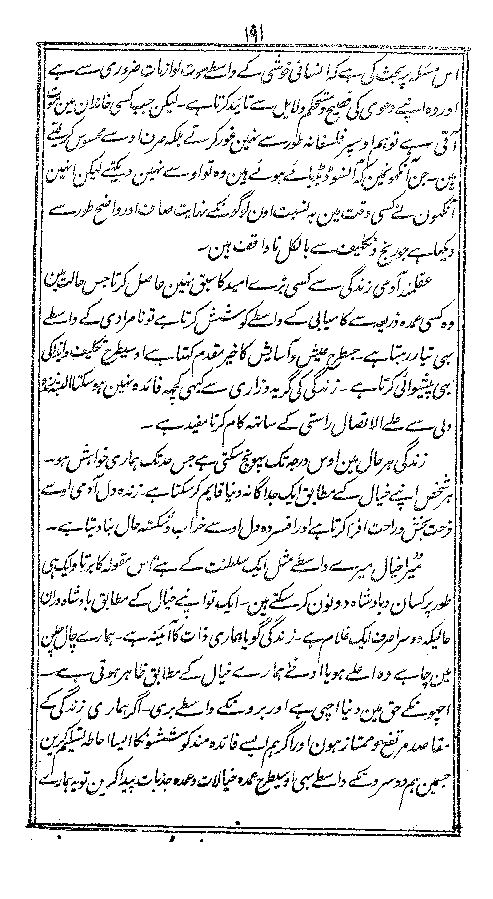 ۱۹۱
اس مسئلہ پر بحث کی ہے کہ انسانی خوشی کے واسطے موت لوازمات ضروری سے ہے
اور وہ اپنے دعوی کی فصیح و مستحکم دلایل سے تائید کرتا ہے ۔ لیکن جب کسی خاندان مین موت
آتی ہے تو ہم اوسپر فلسفانہ طور سے نہین غور کرتے بلکہ صرف اوسے محسوس کرتے
ہین ۔ جن آنکھونمین کہ آنسو ڈبڈبائے ہوئے ہین وہ تو اوسے نہین دیکھتے لیکن انہین
آنکھون نے کسی وقت مین بہ نسبت اون لوگونکے نہایت صاف اور واضح طور سے
دیکھا ہے جو رنج و تکلیف سے بالکل ناواقف ہین ۔
عقلمند آدمی زندگی سے کسی بڑے امید کا سبق نہین حاصل کرتا جس حالت مین
وہ کسی عمدہ ذریعہ سے کامیابی کے واسطے کوشش کرتا ہے تو نامرادی کے واسطے
بھی تیار رہتا ہے ۔ جسطرح عیش و آسایش کا خیر مقدم کہتا ہے اوسیطرح تکلیف و ایذا کی
بھی پیشوائی کرتا ہے ۔ زندگی کی گریہ و زاری سے کبھی کچھ فائدہ نہین ہو سکتا البتہ
دلی سے علے الاتصال راستی کے ساتھ کام کرنا مفید ہے ۔
زندگی ہر حال مین اوس درجہ تک پہونچ سکتی ہے جس حد تک ہماری خواہش ہو ۔
ہر شخص اپنے خیال کے مطابق ایک جداگانہ دنیا قایم کر سکتا ہے ۔ زندہ دل آدمی اوسے
فرحت بخش و راحت افزا کرتا ہے اور افسردہ دل اوسے خراب و شکستہ حال بنا دیتا ہے ۔
میرا خیال میرے واسطے مثل ایک سلطنت کے ہے اس مقولہ کا برتاو ایک ہی
طور پر کسان و بادشاہ دونون کر سکتے ہین ۔ ایک تو اپنے خیال کے مطابق بادشاہ دران
حالیکہ دوسرا صرف ایک غلام ہے ۔ زندگی گویا ہماری ذات کا آئینہ ہے ۔ ہمارے چال چلن
مین چاہے وہ اعلے ہو یا ادنے ہمارے خیال کے مطابق ظاہر ہوتی ہے ۔
اچھونکے حق مین دنیا اچھی ہے اور برونکے واسطے بری ۔ اگر ہماری زندگی کے
مقاصد مرتفع و ممتاز ہون اور اگر ہم ایسے فائدہ مند کوششونکا ایسا احاطہ تسلیم کرین
جسمین ہم دوسرونکے واسطے بھی اوسیطرح عمدہ خیالات و عمدہ جذبات پیدا کرین تو یہ ہمارے